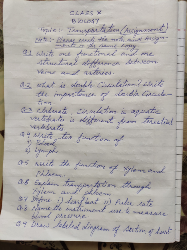 CLASS X
BIOLOGY
Topic: Transportation (Assignment)
Note: Please write the
in the
Q.1 Write one functional and one
structural difference between
veins and arteries
Q.2 What is double Circulation? Write
the importance of double Circu-
lation
Q.3 Elaborate. Circulation in aquatic
vertebrates is different from terrestrial
vertebrates
Q.4 Write the function of
Q.5 Write the function of Xylem and
Phloem.
Q.6 Explain transportation through
Xylem and phloem
Q.7 Define i) heart beat ii) Pulse rate
Q.8 Name the instrument use to measure
blood pressure
Q.9 Draw labeled diagram of section of heart